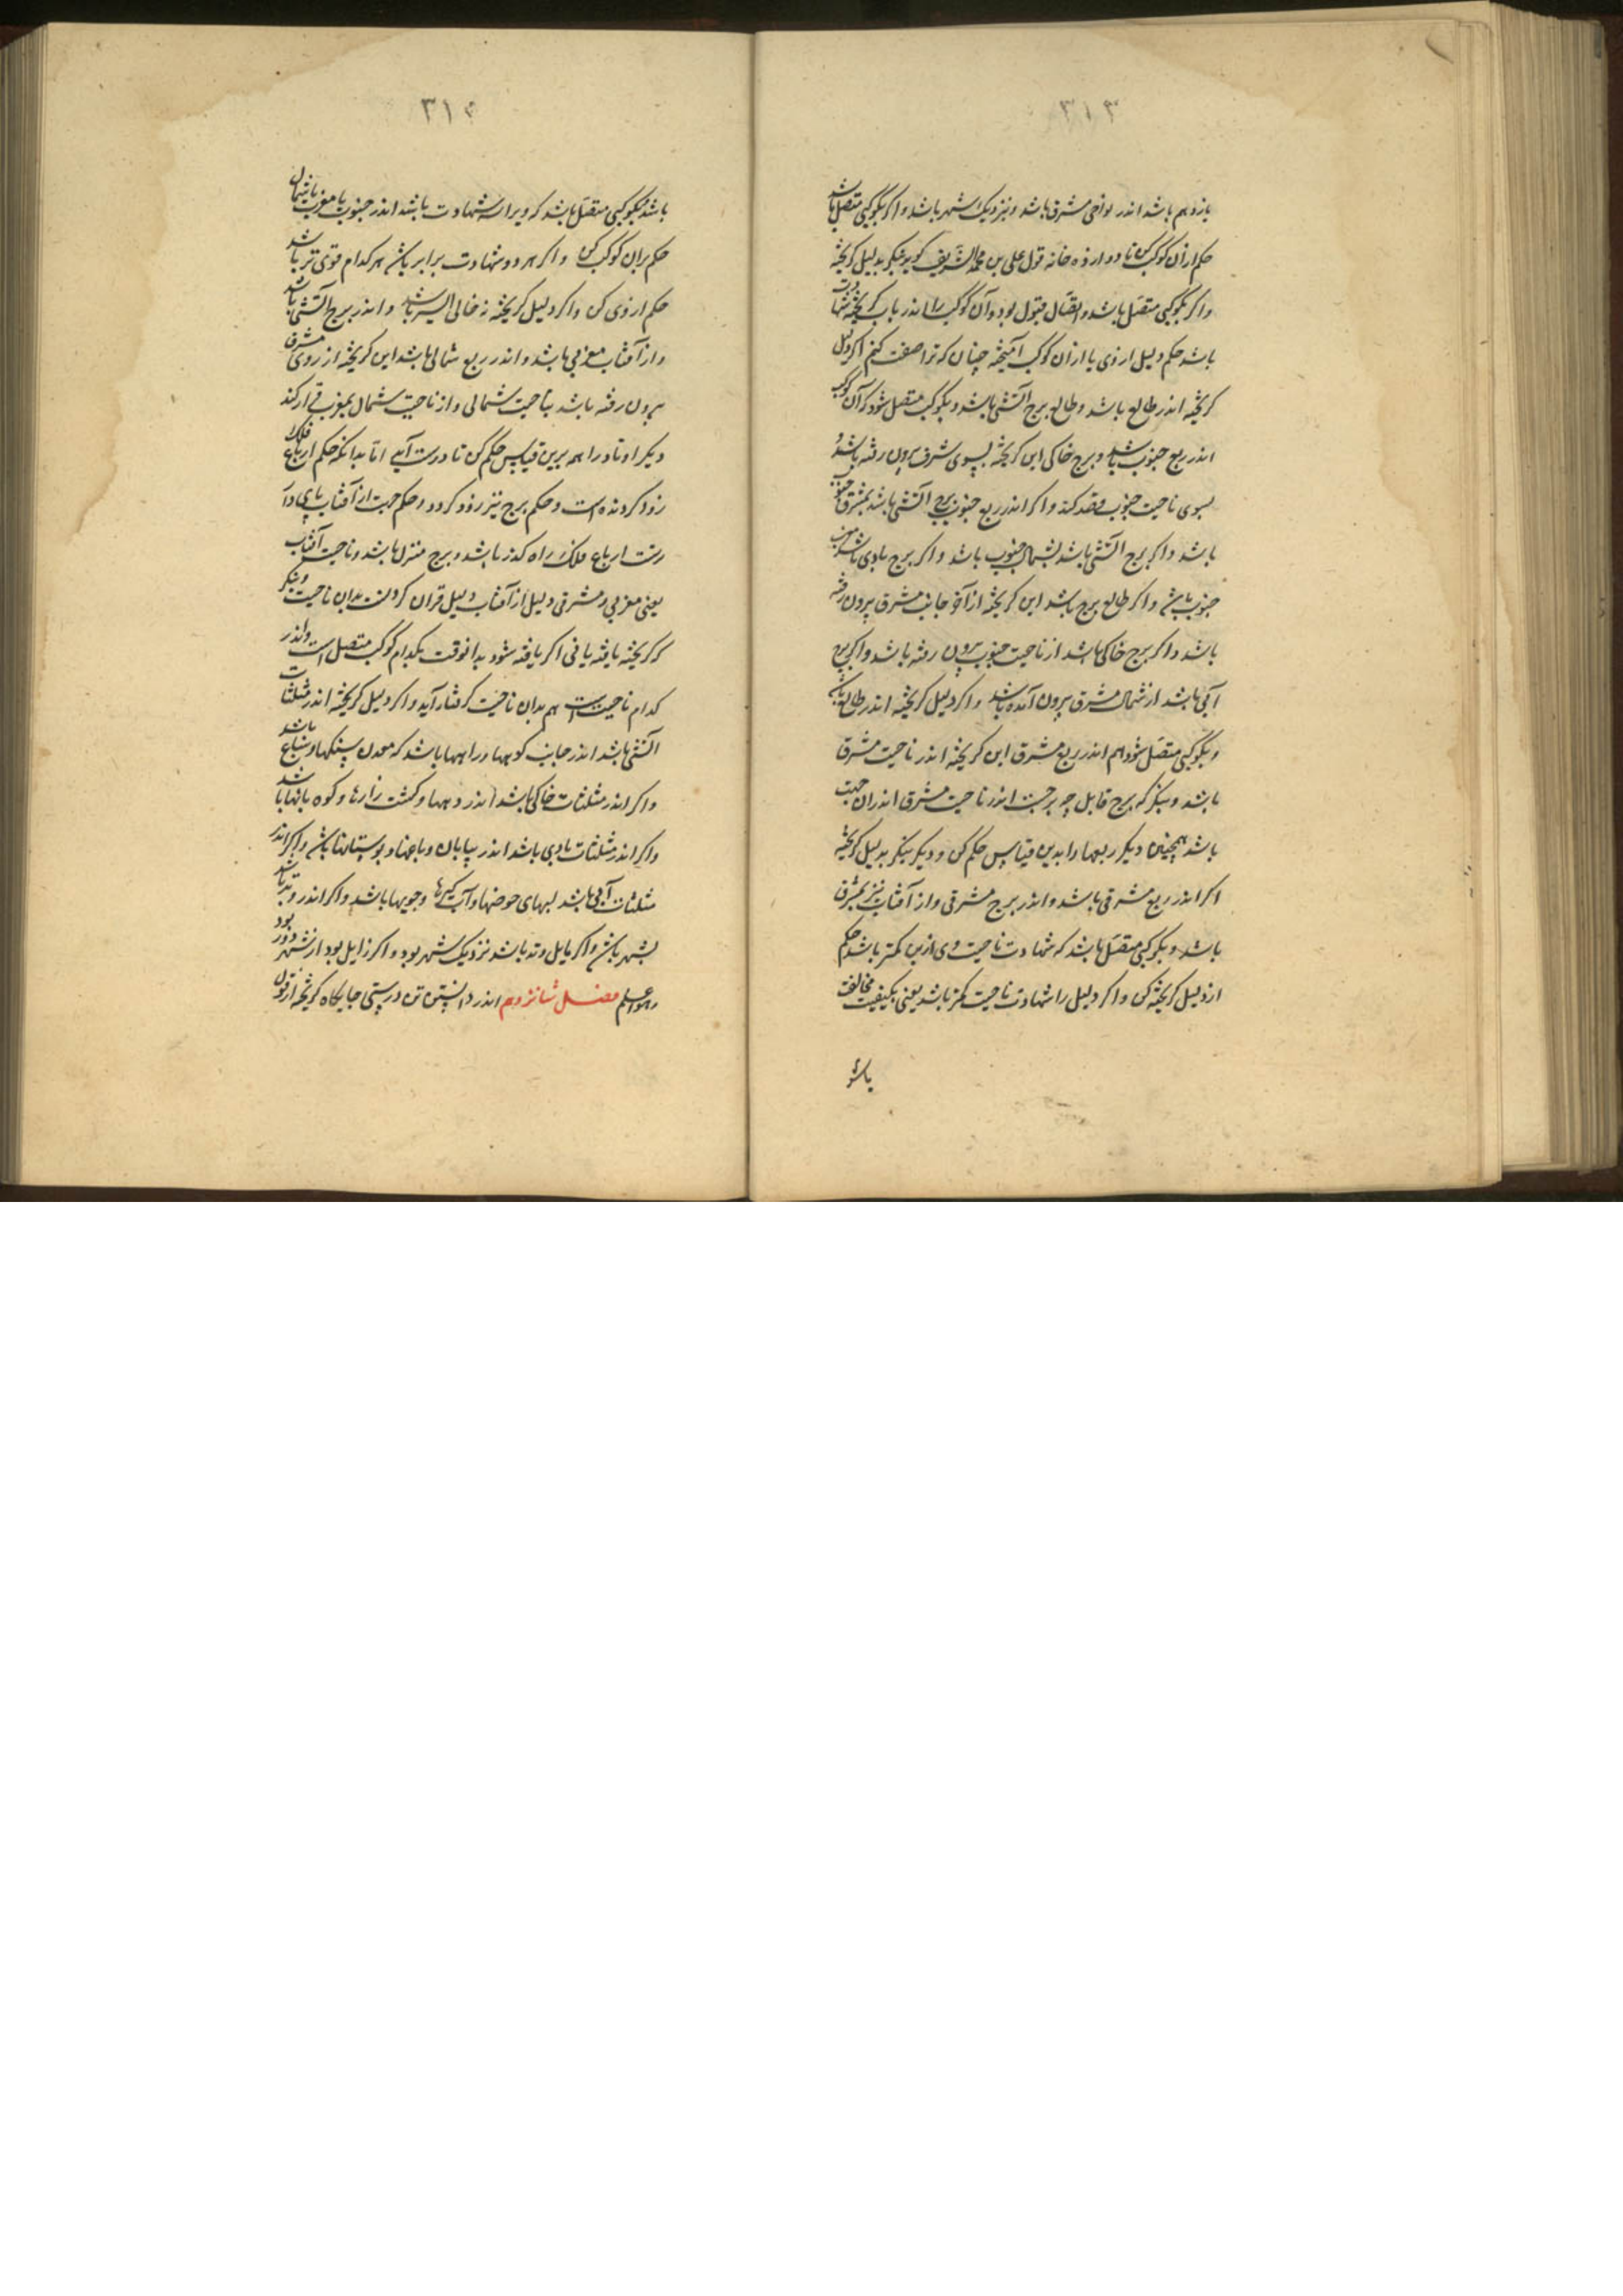 ۳۱۳
یازدهم باشد اندر نواحی مشرق باشد و نزدیک شهر باشد و اکر بکوکبی متصل باشد
حکم ازان کوکب کن تا دوازده خانه قول علی بن محمد الشریف کوید بنکر بدلیل کریخته
واکر بکوکبی متصل باشد و اتصال قبول بود و آن کوکب را اندر باب کریخته شهادت
باشد حکم دلیل ازوی یا ازان کوکب آمیخته چنان که ترا صفت کنم اکر دلیل
کریخته اندر طالع باشد و طالع برج آتشی باشد و بکوکب متصل شود که آن کوکب
اندر ربع جنوب باشد و برج خاکی این کریخته بسوی شرق بیرون رفته باشد و
بسوی ناحیت جنوب قصد کند و اکر اندر ربع جنوب برج آتشی باشد بمشرق جنوب
باشد و اکر برج آتشی باشد بشمال جنوب باشد و اکر برج بادی باشد مغرب
جنوب باشد و اکر طالع برج باشد این کریخته از آخر جانب مشرق بیرون رفته
باشد و اکر برج خاکی باشد از ناحیت جنوب بیرون رفته باشد و اکر برج
آبی باشد از شمال مشرق بیرون آمده باشد و اکر دلیل کریخته اندر طالع
و بکوکبی متصل شود هم اندر ربع مشرق این کریخته اندر ناحیت مشرق
باشد و بنکر که برج قابل چه برجست اندر ناحیت مشرق اندران جهت
باشد همچنین دیکر ربعها را بدین قیاس حکم کن و دیکر بنکر بدلیل کریخته
اکر اندر ربع مشرقی باشد و اندر برج مشرقی و از آفتاب نیز بمشرق
باشد و بکوکبی متصل باشد که شهادت ناحیت وی ازین کمتر باشد حکم
از دلیل کریخته کن و اکر دلیل را شهادت ناحیت کمتر باشد یعنی بکیفیت مخالف
باشد
۳۱۴
باشد بکوکبی متصل باشد که ویرا سه شهادت باشد اندر جنوب یا مغرب یا شمال
حکم بران کوکب کن و اکر هر دو شهادت برابر باشد هر کدام قوی تر باشد
حکم ازوی کن و اکر دلیل کریخته نه خالی السیر باشد و اندر برج آتشی باشد
و از آفتاب مغربی باشد و اندر ربع شمالی باشد این کریخته از روی مشرق
بیرون رفته باشد بناحیت شمالی و از ناحیت شمال بمغرب قرار کند
دیکر اوتاد را هم برین قیاس حکم کن تا درست آید اما بدانکه حکم ارباع فلک
زود کردنده است و حکم برج نیز زود کردد و حکم جهت از آفتاب
رفت ارباع فلک راه کذر باشد و برج منزل باشد و ناحیت آفتاب
یعنی مغربی و مشرقی دلیل از آفتاب دلیل قران کردنست بدان ناحیت و بنکر
که کریخته یافته یا نی اکر یافته شود بدانوقت بکدام کوکب متصل است و اندر
کدام ناحیت است هم بدان ناحیت کرفتار آید و اکر دلیل کریخته اندر مثلثات
آتشی باشد اندر جانب کوهها و راهها باشد که معدن سنکها و سباع باشد
و اکر اندر مثلثات خاکی باشد اندر دهها و کشت زارها و کوه باشد
و اکر اندر مثلثات بادی باشد اندر بیابان و باغها و بوستانها باشد و اکر اندر
مثلثات آبی باشد لبهای حوضها و آب کیرها و جویها باشد و اکر اندر وتد باشد
بشهر باشد و اکر مایل وتد باشد نزدیک شهر بود و اکر زایل بود از شهر دور بود
و هو اعلم فصل شانزدهم اندر دانستن درستی جایکاه کریخته از قول